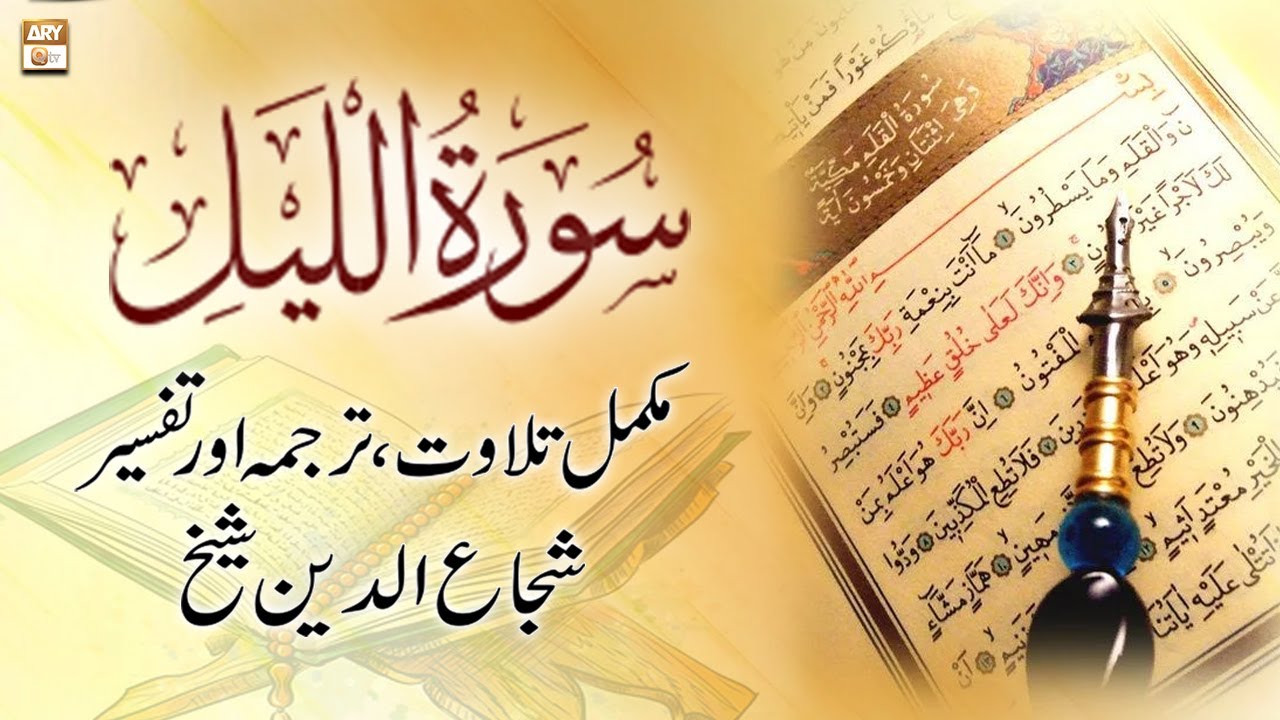 ARY
Qtv
سُورَةُ اللَّيْلِ
مکمل تلاوت، ترجمہ اور تفسیر
شجاع الدین شیخ
مَآؤُكُمْ غَوْرًا فَمَنْ يَأْتِيكُمْ
سُورَةُ الْقَلَمِ مَكِّيَّةٌ
وَهِيَ اثْنَتَانِ وَخَمْسُونَ آيَةً
بِسْمِ اللهِ الرَّحْمٰنِ
نٓ وَالْقَلَمِ وَمَا يَسْطُرُونَ ۝١ مَآ أَنْتَ بِنِعْمَةِ رَبِّكَ بِمَجْنُونٍ ۝٢ وَإِنَّ
لَكَ لَأَجْرًا غَيْرَ ۝٣ وَإِنَّكَ لَعَلٰى خُلُقٍ عَظِيمٍ ۝٤ فَسَتُبْصِرُ
وَيُبْصِرُونَ ۝٥ الْمَفْتُونُ ۝٦ إِنَّ رَبَّكَ هُوَ أَعْلَمُ بِمَنْ
عَنْ سَبِيلِهِ وَهُوَ أَعْلَمُ فَلَا تُطِعِ الْمُكَذِّبِينَ ۝٨ وَدُّوا
فَيُدْهِنُونَ ۝٩ وَلَا تُطِعْ مَهِينٍ ۝١٠ هَمَّازٍ مَشَّآءٍ
لِلْخَيْرِ مُعْتَدٍ أَثِيمٍ ۝١٢ زَنِيمٍ ۝١٣ أَنْ
تُتْلٰى عَلَيْهِ اٰيَاتُنَا